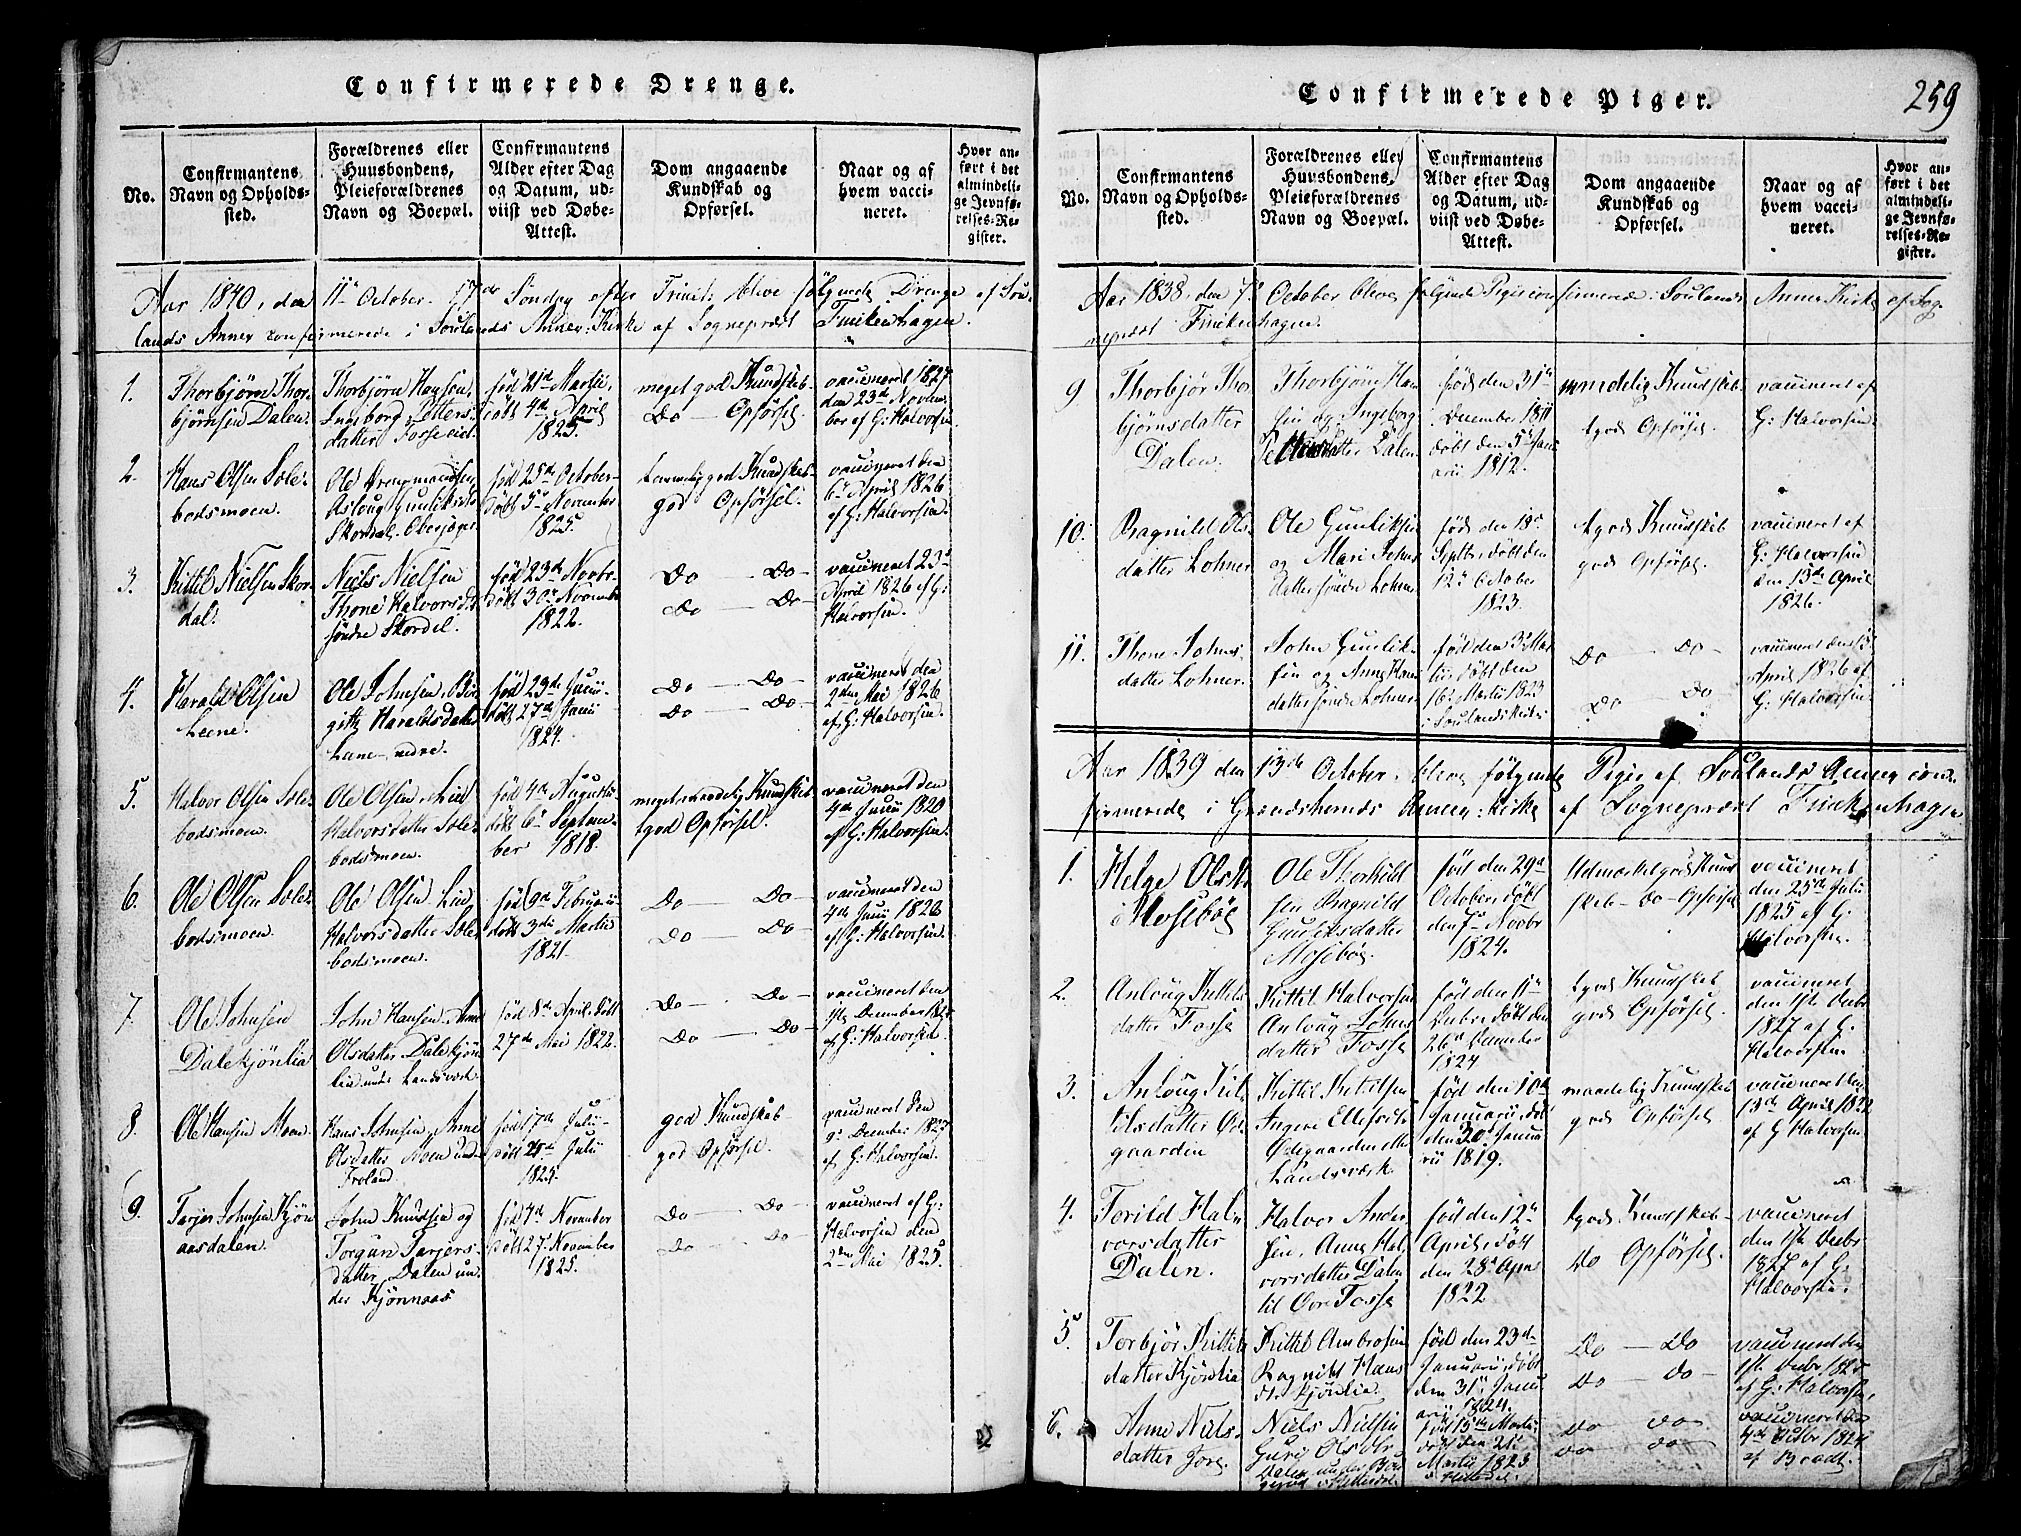 Confirmerede Drenge.
No.
Confirmantens
Navn og Opholds-
sted.
Forældrenes eller
Huusbondens,
Pleieforældrenes
Navn og Boepæl.
Confirmantens
Alder efter Dag
og Datum, ud-
viist ved Døbe-
Attest.
Dom angaaende
Kundskab og
Opførsel.
Naar og af
hvem vacci-
neret.
Hvor an-
ført i det
almindeli-
ge Jevnfø-
relses-Re-
gister.
Aar 1840, den 11te October 17de Søndag efter Trinit: bleve følgende Drenge af Sou-
lands Annex confirmerede i Soulands Annex-Kirke af Sognepræst Finkenhagen.
1.
Thorbjørn Thor-
bjørnsen Dalen.
Thorbjørn Hansen,
Ingeborg
datter Fosse eid.
fød 21de Martii,
døbt 4de April
1825.
meget god Kundskab
Do — Opførsel
vaccineret 1827
den 23de Novem-
ber af G: Halvorsen
2.
Hans Olsen Sole-
bodsmoen.
Ole
Aslaug Gunliksdr
Skordal.
fød 25de October
døbt 5te November
1825.
temmelig god Kundskab
god Opførsel.
vaccineret den
6te April 1826
af G: Halvorsen.
3.
Kittil Nielsen Skor-
dal.
Niels Nielsen
Thone Halvorsdr
søndre Skordal.
fød 23de Novbr.
døbt 30te November
1822.
Do — Do —
Do — Do —
vaccineret 23de
April 1826 af G:
Halvorsen.
4.
Harald Olsen
Leene.
Ole Johnsen, Bir-
gitte Haraldsdatter
Lane nedre.
fød 23de Junii
døbt 27de Junii
1824.
Do — Do —
Do — Do —
vaccineret den
2den Mai 1826
af G: Halvorsen.
5.
Halvor Olsen Sole-
bodsmoen.
Ole Olsen, Liv
Halvorsdatter Sole-
bodsmoen.
fød 4de Augusti
døbt 6te Septem-
ber 1818.
meget maadelig Kundskab
god Opførsel.
vaccineret den
4de Junii 1820
af G: Halvorsen.
6.
Ole Olsen Sole-
bodsmoen.
Ole Olsen Liv
Halvorsdatter Sole-
bodsmoen.
fød 9de Februarii
døbt 3die Martii
1821.
Do — Do —
Do — Do —
vaccineret den
4de Junii 1820
af G: Halvorsen.
7.
Ole Johnsen
Dalekjønlia
John Hansen, Anne
Olsdatter Dalekjøn-
lia under Landsverk.
fød 8de April, døbt
27de Mai 1822.
Do — Do —
Do — Do —
vaccineret den
1ste December
af G: Halvorsen.
8.
Ole Hansen Moen
Hans Johnsen, Anne
Olsdatter Moen und.
Froland.
fød 17de Julii
døbt 25de Julii
1825.
god Kundskab
god Opførsel.
vaccineret den
9: December 1827
af G: Halvorsen.
9.
Tarjer Johnsen Kjøn-
aasdalen.
John Knudsen og
Torgun Tarjers-
datter Dalen un-
der Kjønnaas
fød 4de November
døbt 27: November
1825.
Do — Do —
Do — Do
vaccineret af G:
Halvorsen den
2den Mai 1825.
Confirmerede Piger.
259
No.
Confirmantens
Navn og Opholds-
sted.
Forældrenes eller
Huusbondens,
Pleieforældrenes
Navn og Boepæl.
Confirmantens
Alder efter Dag
og Datum, ud-
viist ved Døbe-
Attest.
Dom angaaende
Kundskab og
Opførsel.
Naar og af
hvem vacci-
neret.
Hvor an-
ført i det
almindeli-
ge Jevnfø-
relses-Re-
gister.
Aar 1838, den 7de October bleve følgende Piger con firmerede i Soulands Annex Kirke af Sog-
nepræst Finkenhagen.
9
Thorbjør Thor-
bjørnsdatter
Dalen.
Thorbjørn Han-
sen og Ingeborg
datter Dalen
født den 31te
December 1811
døbt den 5te Janu-
arii 1812.
maadelig Kundskab
god Opførsel.
vaccineret af
G: Halvorsen.
10.
Ragnild Ols-
datter Lohner
Ole Gunliksen
og Mari Johns
datter søndre Lohner
fød den 18de
Septbr, døbt den
12te October
1823.
god Kundskab
god Opførsel.
vaccineret af
G: Halvorsen
den 13de April
1826.
11.
Thone Johns-
datter Lohner.
John Gunlik-
sen og Anne Hans
datter søndre Lohner
fød den 3de Mar-
tii, døbt den
16de Martii 1823
i Soulands Kirke
Do — Do —
Do — Do
vaccineret den 13
April 1826 af
G: Halvorsen
Aar 1839 den 13de October, bleve følgende Piger af Soulands Annex con-
firmerede i Grandsherreds Annex: Kirke af Sognepræst Finkenhagen
1.
Helge Olsdr
Mosebøe
Ole Thorkild-
sen Ragnild
Gunliksdatter
Mosebøe.
fød den 29de
October, døbt
den 7de Novbr
1824.
Udmærket god Kund-
skab — Do — Opførsel
vaccineret
den 25de Julii
1825 af G:
Halvorsen.
2.
Anlaug Kittils
datter Fosse
Kittil Halvorsen
Anlaug Johns
datter Fosse
fød den 11te
Decbr, døbt den
26de December
1824
god Kundskab
god Opførsel.
vaccineret
den 1ste Decbr
1827 af G:
Halvorsen
3.
Anlaug Kit-
tilsdatter Øde-
gaarden
Kittil Kittilsen
Ingere Ellefsdr
Ødegaarden
Landsværk
fød den 10de
Januarii, døbt
den 30te Janua-
rii 1819.
maadelig Kundskab
god Opførsel.
vaccineret den
13de April 1822
af G Halvorsen
4.
Torild Hal-
vorsdatter
Dalen.
Halvor Ander-
sen, Anne Hal-
vorsdatter Dalen
til Øvre Fosse
fød den 12te
April, døbt
den 28de April
1822
god Kundskab
Do Opførsel.
vaccineret
den 1ste Decbr
1827 af G:
Halvorsen.
5
Torbjør Kittils
datter Kjønlia
Kittil Ambrosen
Ragnild Hans
dr. Kjønlia.
fød den 23de
Januarii, døbt
den 31te Janu-
arii 1824.
Do — Do
Do — do —
vaccineret den
1ste Decbr 1825
af G: Halvorsen.
6.
Anne Niels-
datter Jore.
Niels Nielsen
Guro Olsdtr
Dalen under
fød 15de Martii
døbt den 21de
Martii 1823
i Hitterdal.
do — do —
do — do —
vaccineret den
4de Octbr 1824
af Bradt.